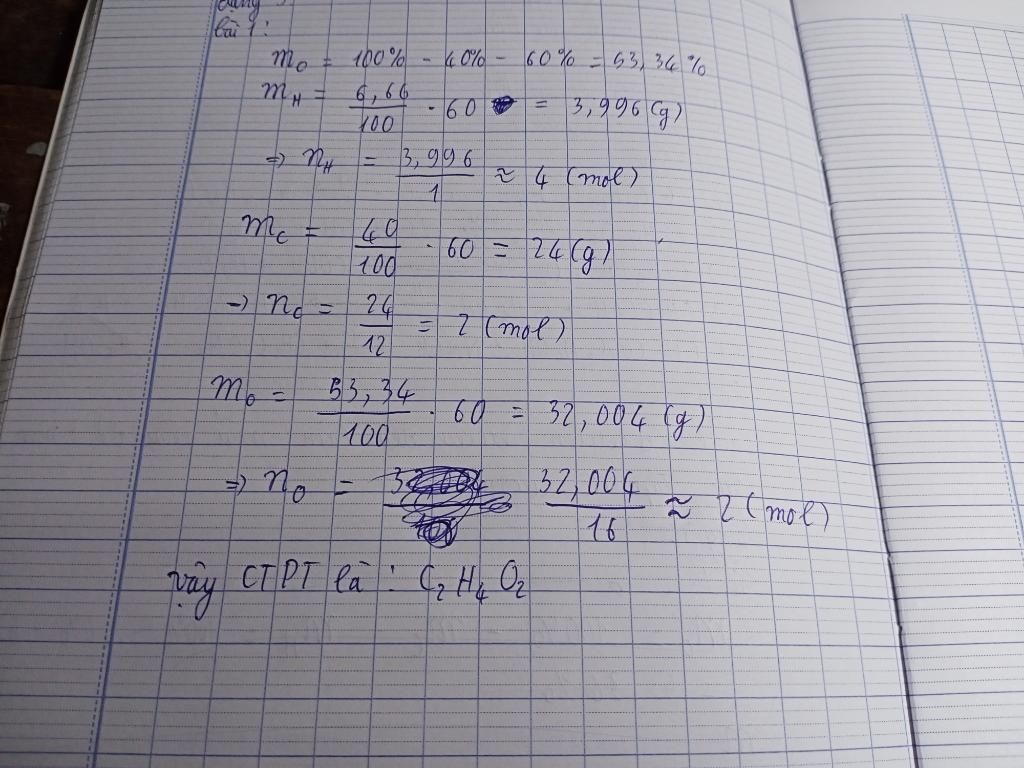 bài 1:
mO = 100% - 40% - 60% = 53,34%
mH = 6,66/100 . 60 = 3,996 (g)
=> nH = 3,996/1 ≈ 4 (mol)
mC = 40/100 . 60 = 24 (g)
-> nC = 24/12 = 2 (mol)
mO = 53,34/100 . 60 = 32,004 (g)
=> nO = 32,004/16 ≈ 2 (mol)
vậy CTPT là : C2H4O2